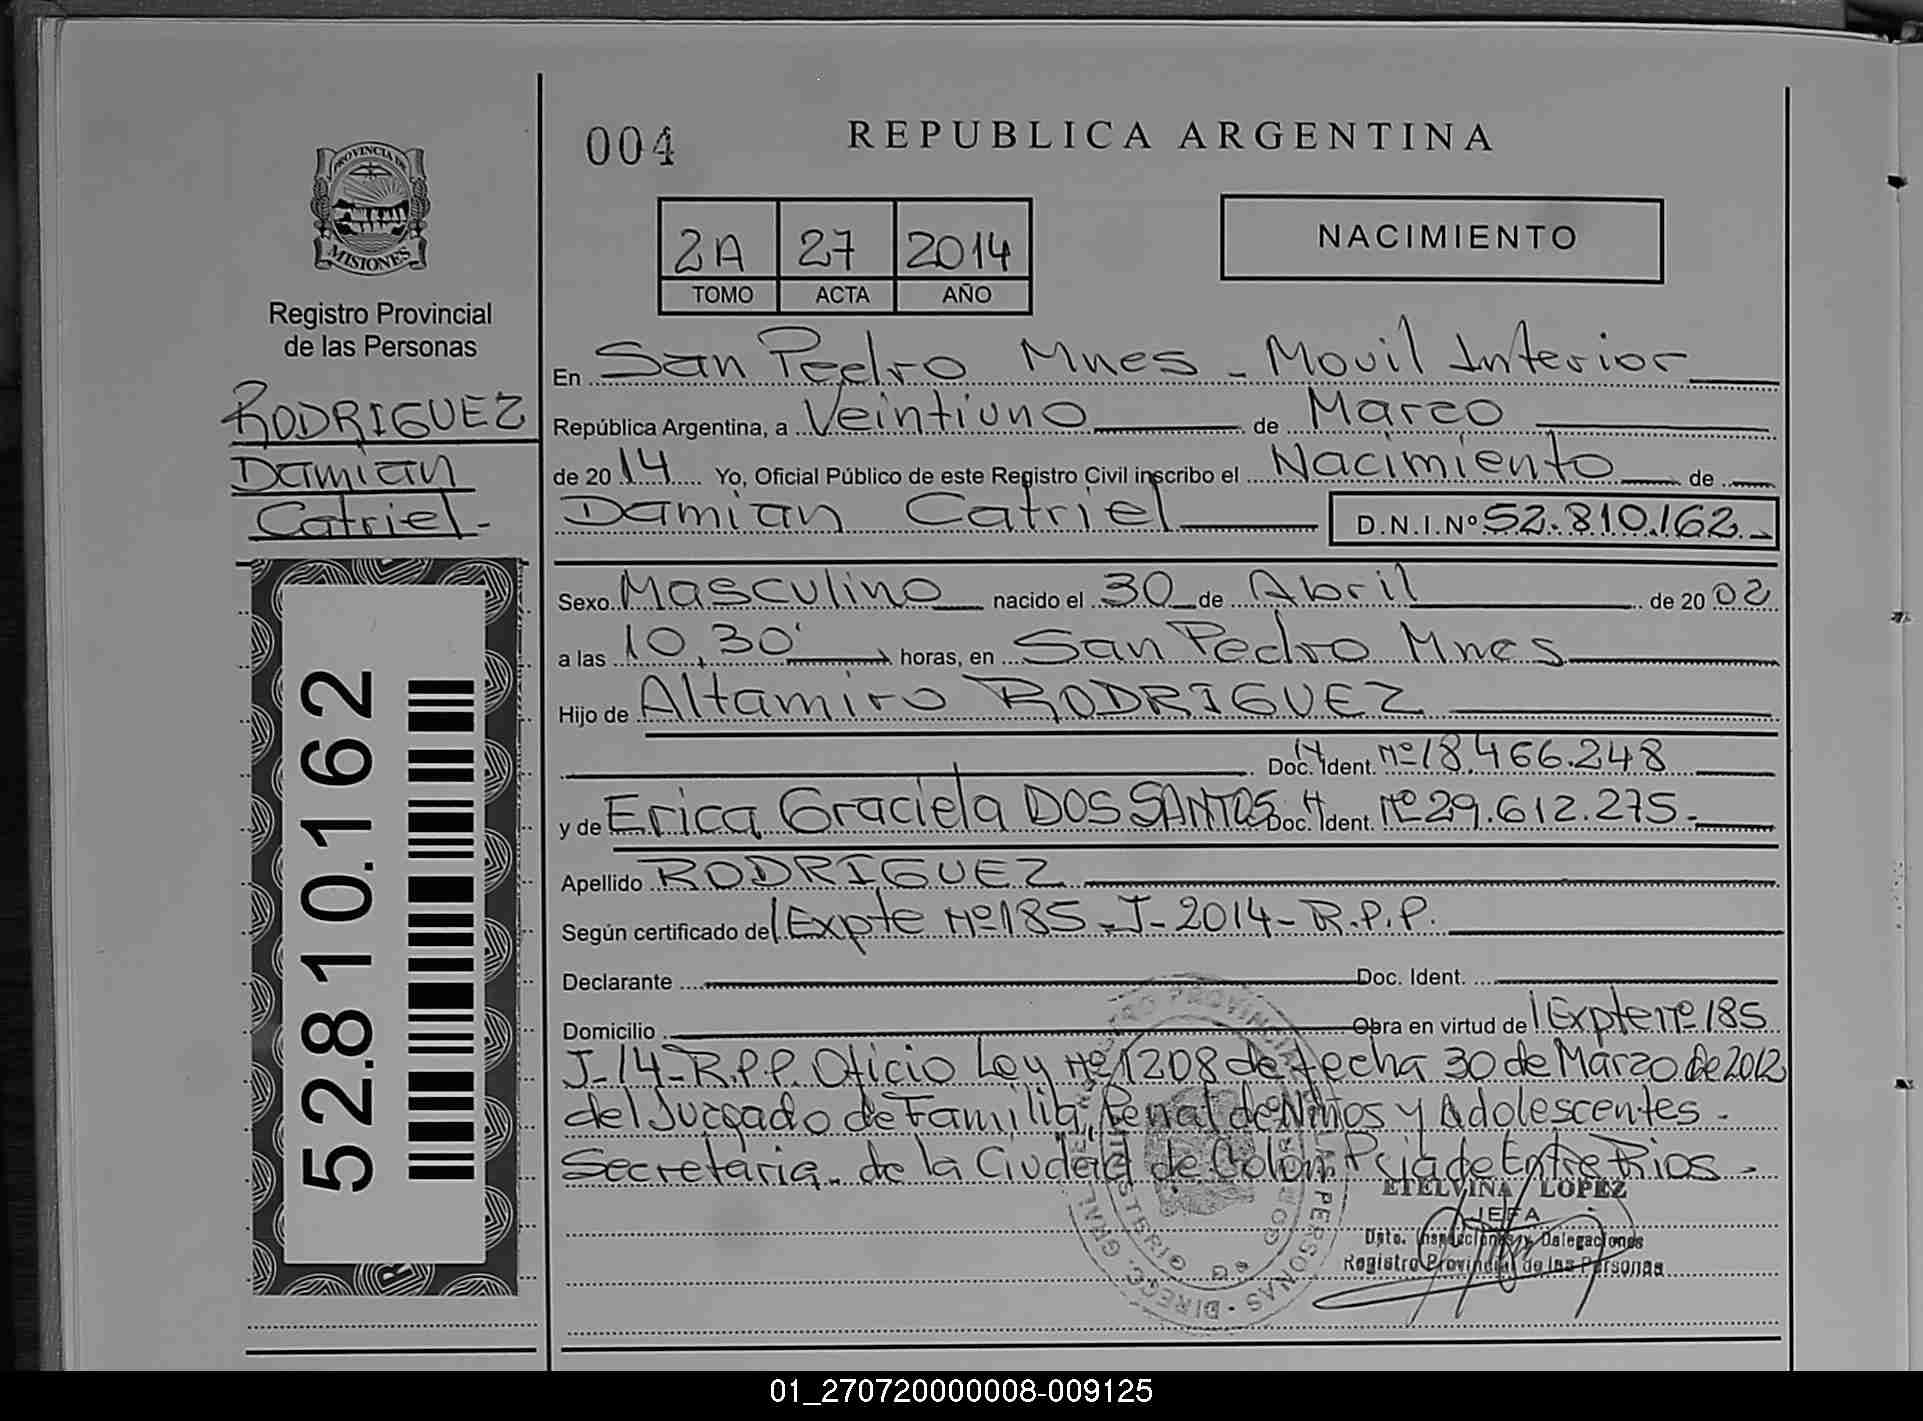 004
REPUBLICA ARGENTINA
PROVINCIA DE
MISIONES
Registro Provincial
de las Personas
2A 27 2014
TOMO ACTA AÑO
NACIMIENTO
RODRIGUEZ
Damian
Catriel-
52.810.162
En San Pedro Mnes - Movil Interior
República Argentina, a Veintiuno de Marzo
de 2014 Yo, Oficial Público de este Registro Civil inscribo el Nacimiento de
Damian Catriel D.N.I.Nº 52.810.162.-
Sexo Masculino nacido el 30 de Abril de 20 02
a las 10,30' horas, en San Pedro Mnes
Hijo de Altamiro RODRIGUEZ
Doc. Ident. Nº 18.466.248
y de Erica Graciela DOS SANTOS Doc. Ident. Nº 29.612.275.-
Apellido RODRIGUEZ
Según certificado de Expte Nº 185-J-2014-R.P.P.
Declarante Doc. Ident.
Domicilio Obra en virtud de Expte Nº 185
J-14-R.P.P. Oficio Ley Nº 1208 de fecha 30 de Marzo de 2012
del Juzgado de Familia, Penal de Niños y Adolescentes -
Secretaria - de la Ciudad de Colon Pcia de Entre Rios -
ETELVINA LOPEZ
JEFA
Dpto. Inspecciones y Delegaciones
Registro Provincial de las Personas
01_270720000008-009125